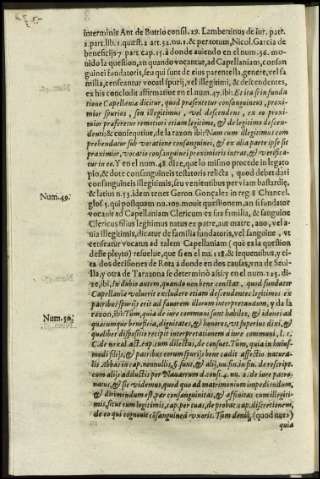 interminis Ant de Butrio consil. 19. Lambertinus de iur. patr.
2. part. lib. 1. quæst. 2 art. 52. nu. 1. & per totum, Nicol. Garcia de
beneficijs 7. part. cap. 15. à donde auiendo en el num. 36. moui-
do la question, an quando vocantur, ad Capellaniam, consan
guinei fundatoris, seu qui sunt de eius parentella, genere, vel fa
milia, censeatur vocari spurij, vel illegitimi, & descendentes,
ex his concludit affirmatiue en el num. 47. ibi: Et ita si in funda
tione Capellaniæ dicitur, quod præsentetur consanguineus, proxi-
mior spurius, seu illegitimus, vel descendens, ex eo proxi-
mior præferetur remotiori etiam legitimo, & de legitimo descen-
denti; & consequitue, de la razon ibi: Nam cum illegitimus com
prehendatur sub vocatione consanguinei, & ex alia parte ipse sit
proximior, vocatio consanguinei proximioris intrat, & verifica-
tur in eo. Y en el num. 48 dize, que lo mismo procede in legato
pio, & dote consanguineis testatoris relicta, quod debet dari
consanguineis illegitimis, seu venientibus per viam bastardiæ,
Num. 49. & latius n. 53. idem tenet Garon. Gonçalez in reg. 8. Chancel.
glos. 5. quí posquam nu. 109. mouit quæstionem, an si fundator
vocauit ad Capellaniam Clericum ex sua familia, & sanguine
Clericus filius legitimus natus ex patre, aut matre, auo, vel a-
uia illegitimis, dicatur de familia fundatoris, vel sanguine, vt
censeatur vocatus ad talem Capellaniam (que es la question
deste pleyto) resuelue, que si en el nu. 118. & sequentibus, y ci-
ta dos decisiones de Rota à donde en dos causas, vna de Seui-
lla, y otra de Taraçona se determinò assi: y en el num. 125. di-
ze, ibi, sic dubio autem, quando non bene constat, quod fundator
Capellaniæ voluerit excludere etiam descendentes legitimos ex
patribus spurijs erit ad fauorem illorum interpretatum, y da la
Num. 50. razon, ibi: Tum, quia de iure communi sunt habiles, & idonei ad
quæcumque beneficia, dignitates, & honores, vt superius dixi, &
quælibet dispositio recipit interpretationem à iure communi, l. 1.
C. de noxal. act. cap. cum dilectus, de consuet. Tum, quia in huius-
modi filijs, & patribus eorum spurijs bene cadit affectio natura-
lis. Abbas in cap. nonnullis, §. sunt, & alij, nu. fin. in fin. de rescript.
cum alijs adductis per Nauarrum d. consi. 4. nu. 2. de iure patro-
natus, & sic videmus, quod quo ad matrimonium impediendum,
& dirimendum est, par consanguinitas, & affinitas cum illegiti-
mis, sicut cum legitimis, cap. per tuas, de probat. cap. discretionem,
de eo qui cognouit cõsanguineã vxoris. Tum deniq; (quod not.)
quia